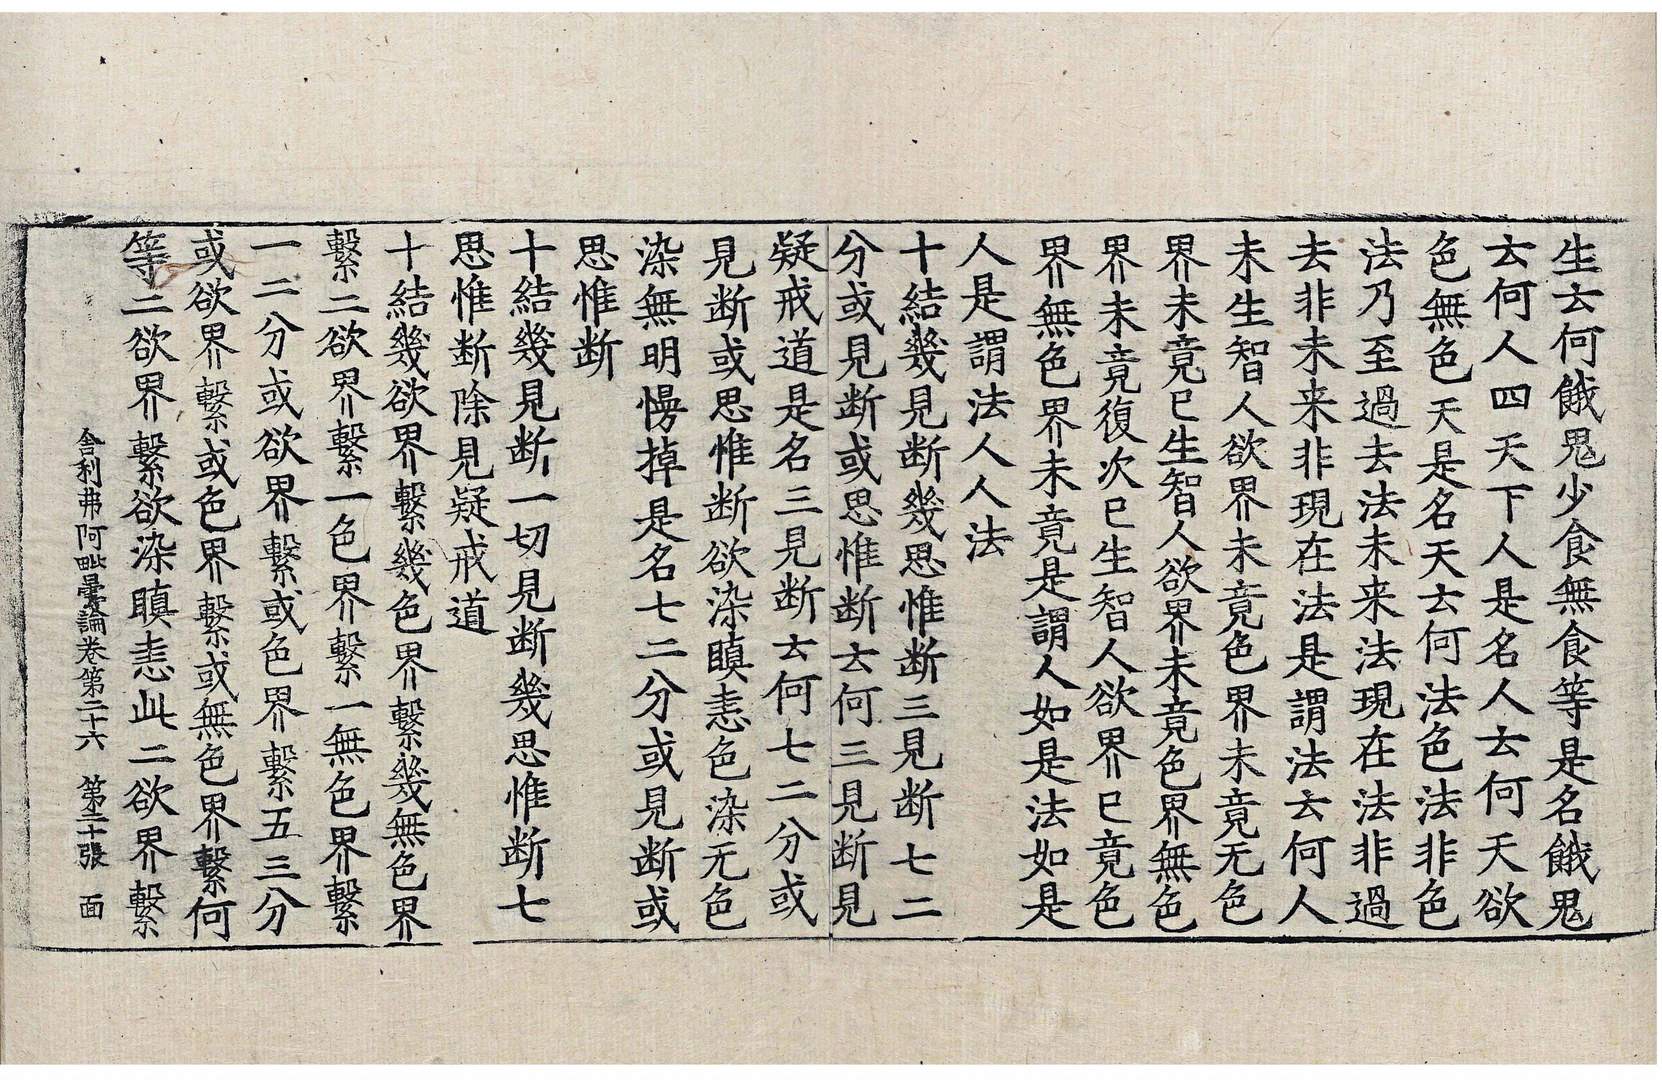 生去何餓鬼少食無食等是名餓鬼
去何人四天下人是名人去何天欲
色無色天是名天去何法色法非色
法乃至過去法未来法現在法非過
去非未来非現在法是謂法去何人
未生智人欲界未竟色界未竟无色
界未竟已生智人欲界未竟色界無色
界未竟復次已生智人欲界已竟色
界無色界未竟是謂人如是法如是
人是謂法人人法
十結幾見断幾思惟断三見断七二
分或見断或思惟断去何三見断見
疑戒道是名三見断去何七二分或
見断或思惟断欲染瞋恚色染无色
染無明慢掉是名七二分或見断或
思惟断
十結幾見断一切見断幾思惟断七
思惟断除見疑戒道
十結幾欲界繫幾色界繫幾無色界
繫二欲界繫一色界繫一無色界繫
一二分或欲界繫或色界繫五三分
或欲界繫或色界繫或無色界繫何
等二欲界繫欲染瞋恚此二欲界繫
舍利弗阿毗曇論卷第二十六 第三十張 面